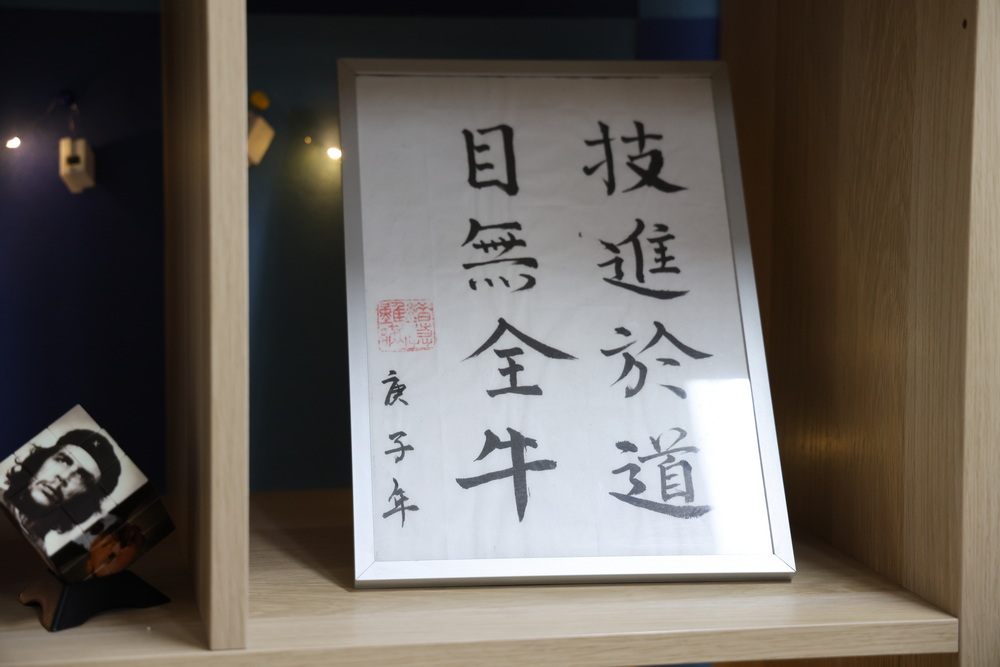 技進於道
目無全牛
庚子年